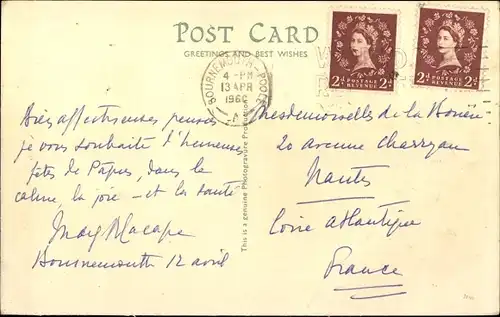 POST CARD
GREETINGS AND BEST WISHES
BOURNEMOUTH-POOLE
4-PM
13 APR
1960
A
POSTAGE
REVENUE
2D 2D
POSTAGE
REVENUE
2D 2D
Très affectueuses pensées
je vous souhaite d'heureuses
fêtes de Pâques, dans le
calme, la joie - et la santé
Bournemouth 12 avril
This is a genuine Photogravure Production
Mesdemoiselles de la
20 avenue
Nantes
Loire Atlantique
France